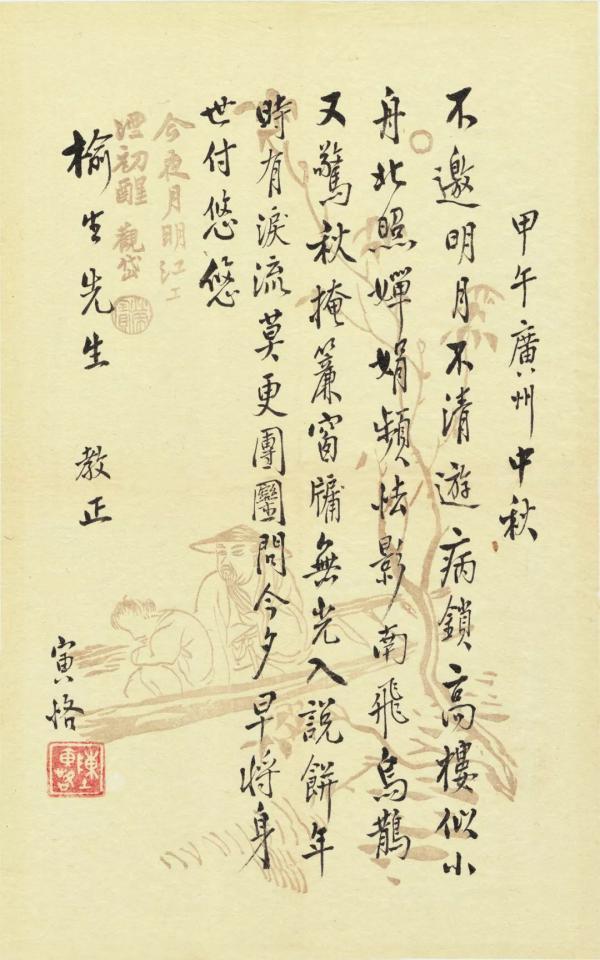 甲午廣州中秋
不邀明月不清遊病鎖高樓似小
舟北照嬋娟頻怯影南飛烏鵲
又驚秋掩簾窗牖無光入說餅年
時有淚流莫更團圞問今夕早將身
世付悠悠
榆生先生 教正
寅恪
今夜月明江上
酒初醒 觀岱
陳寅恪